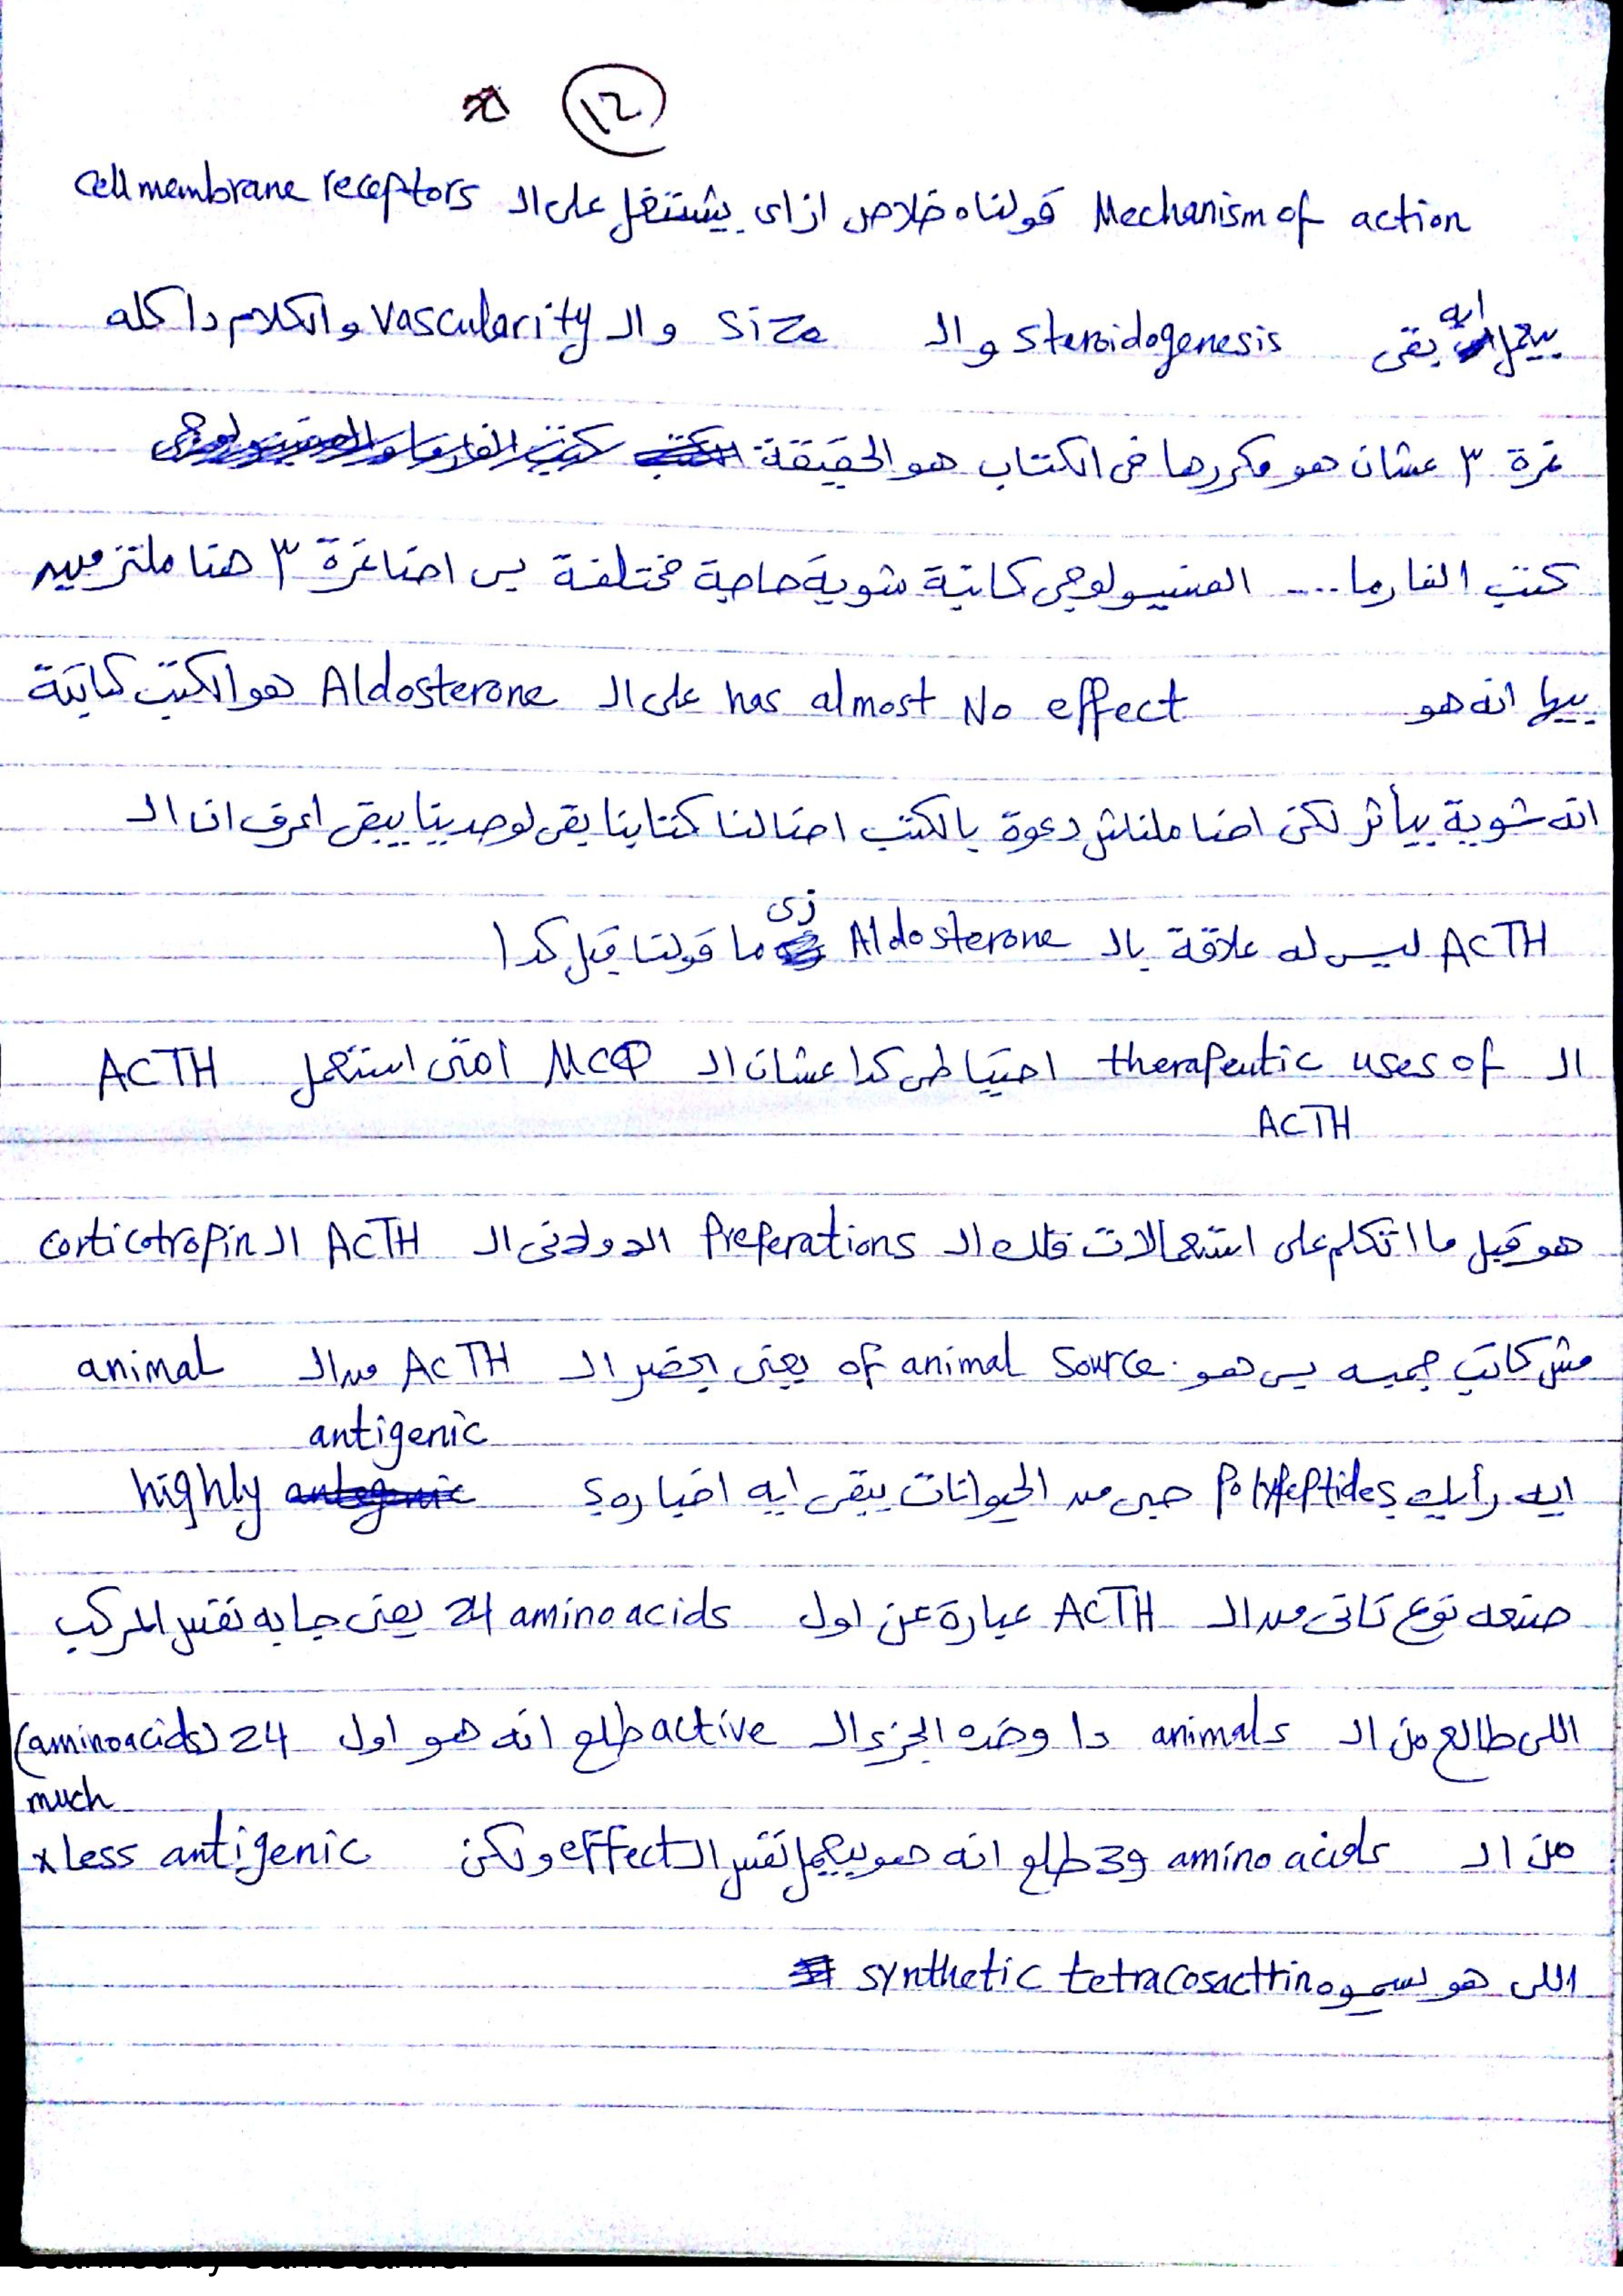 12
Mechanism of action قولناه خلاص ازاى بيشتغل على ال cell membrane receptors
بيعمل ايه بقى steroidogenesis و ال size و ال vascularity والكلام دا كله
نمرة ٣ عشان هو مكررها فى الكتاب هو الحقيقة
كتب الفارما .... الفسيولوجى كاتبة شوية حاجة مختلفة بس احنا نمرة ٣ هنا ملتزميين
بيها انه هو has almost No effect على ال Aldosterone هو الكتب كاتبة
انه شوية بيأثر لكن احنا ملناش دعوة بالكتب احنا لنا كتابنا بقى لوحدينا يبقى اعرف ان ال
ACTH ليس له علاقة بال Aldosterone زى ما قولنا قبل كدا
ال therapeutic uses of ACTH احتياطى كدا عشان ال MCQ امتى استعمل ACTH
هو قبل ما اتكلم على استعمالات قلك ال Preperations الاولانى ال ACTH ال corticotropin
مش كاتب جمبه بس هو of animal source يعنى بحضر ال ACTH من ال animal
ايه رأيك Polypeptides جى من الحيوانات يبقى ايه اخباره؟ highly antigenic
صنعه نوع تانى من ال ACTH عبارة عن اول 24 amino acids يعنى جابه نفس المركب
اللى طالع من ال animals دا وخده الجزء ال active طلع انه هو اول 24 (aminoacids)
من ال 39 amino acids طلع انه هو بيعمل نفس ال effect ولكن much less antigenic x
اللى هو نسميوه synthetic tetracosacttrin